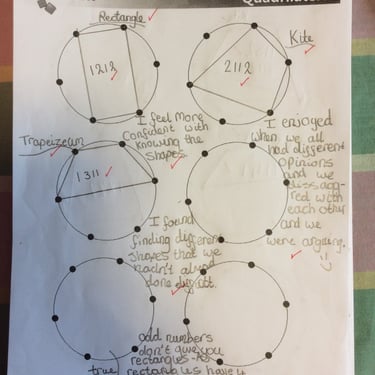 Rectangle
1212
Kite
2112
I feel more
Confident with
knowing the
shapes.
I enjoyed
when we all
had different
opinions
and we
dissag-
red with
each other
and we
were arguing.
Trapeizeum
1311
I found
finding different
shapes that we
hadn't
done
odd numbers
don't give you
rectangles
true
rectangles have